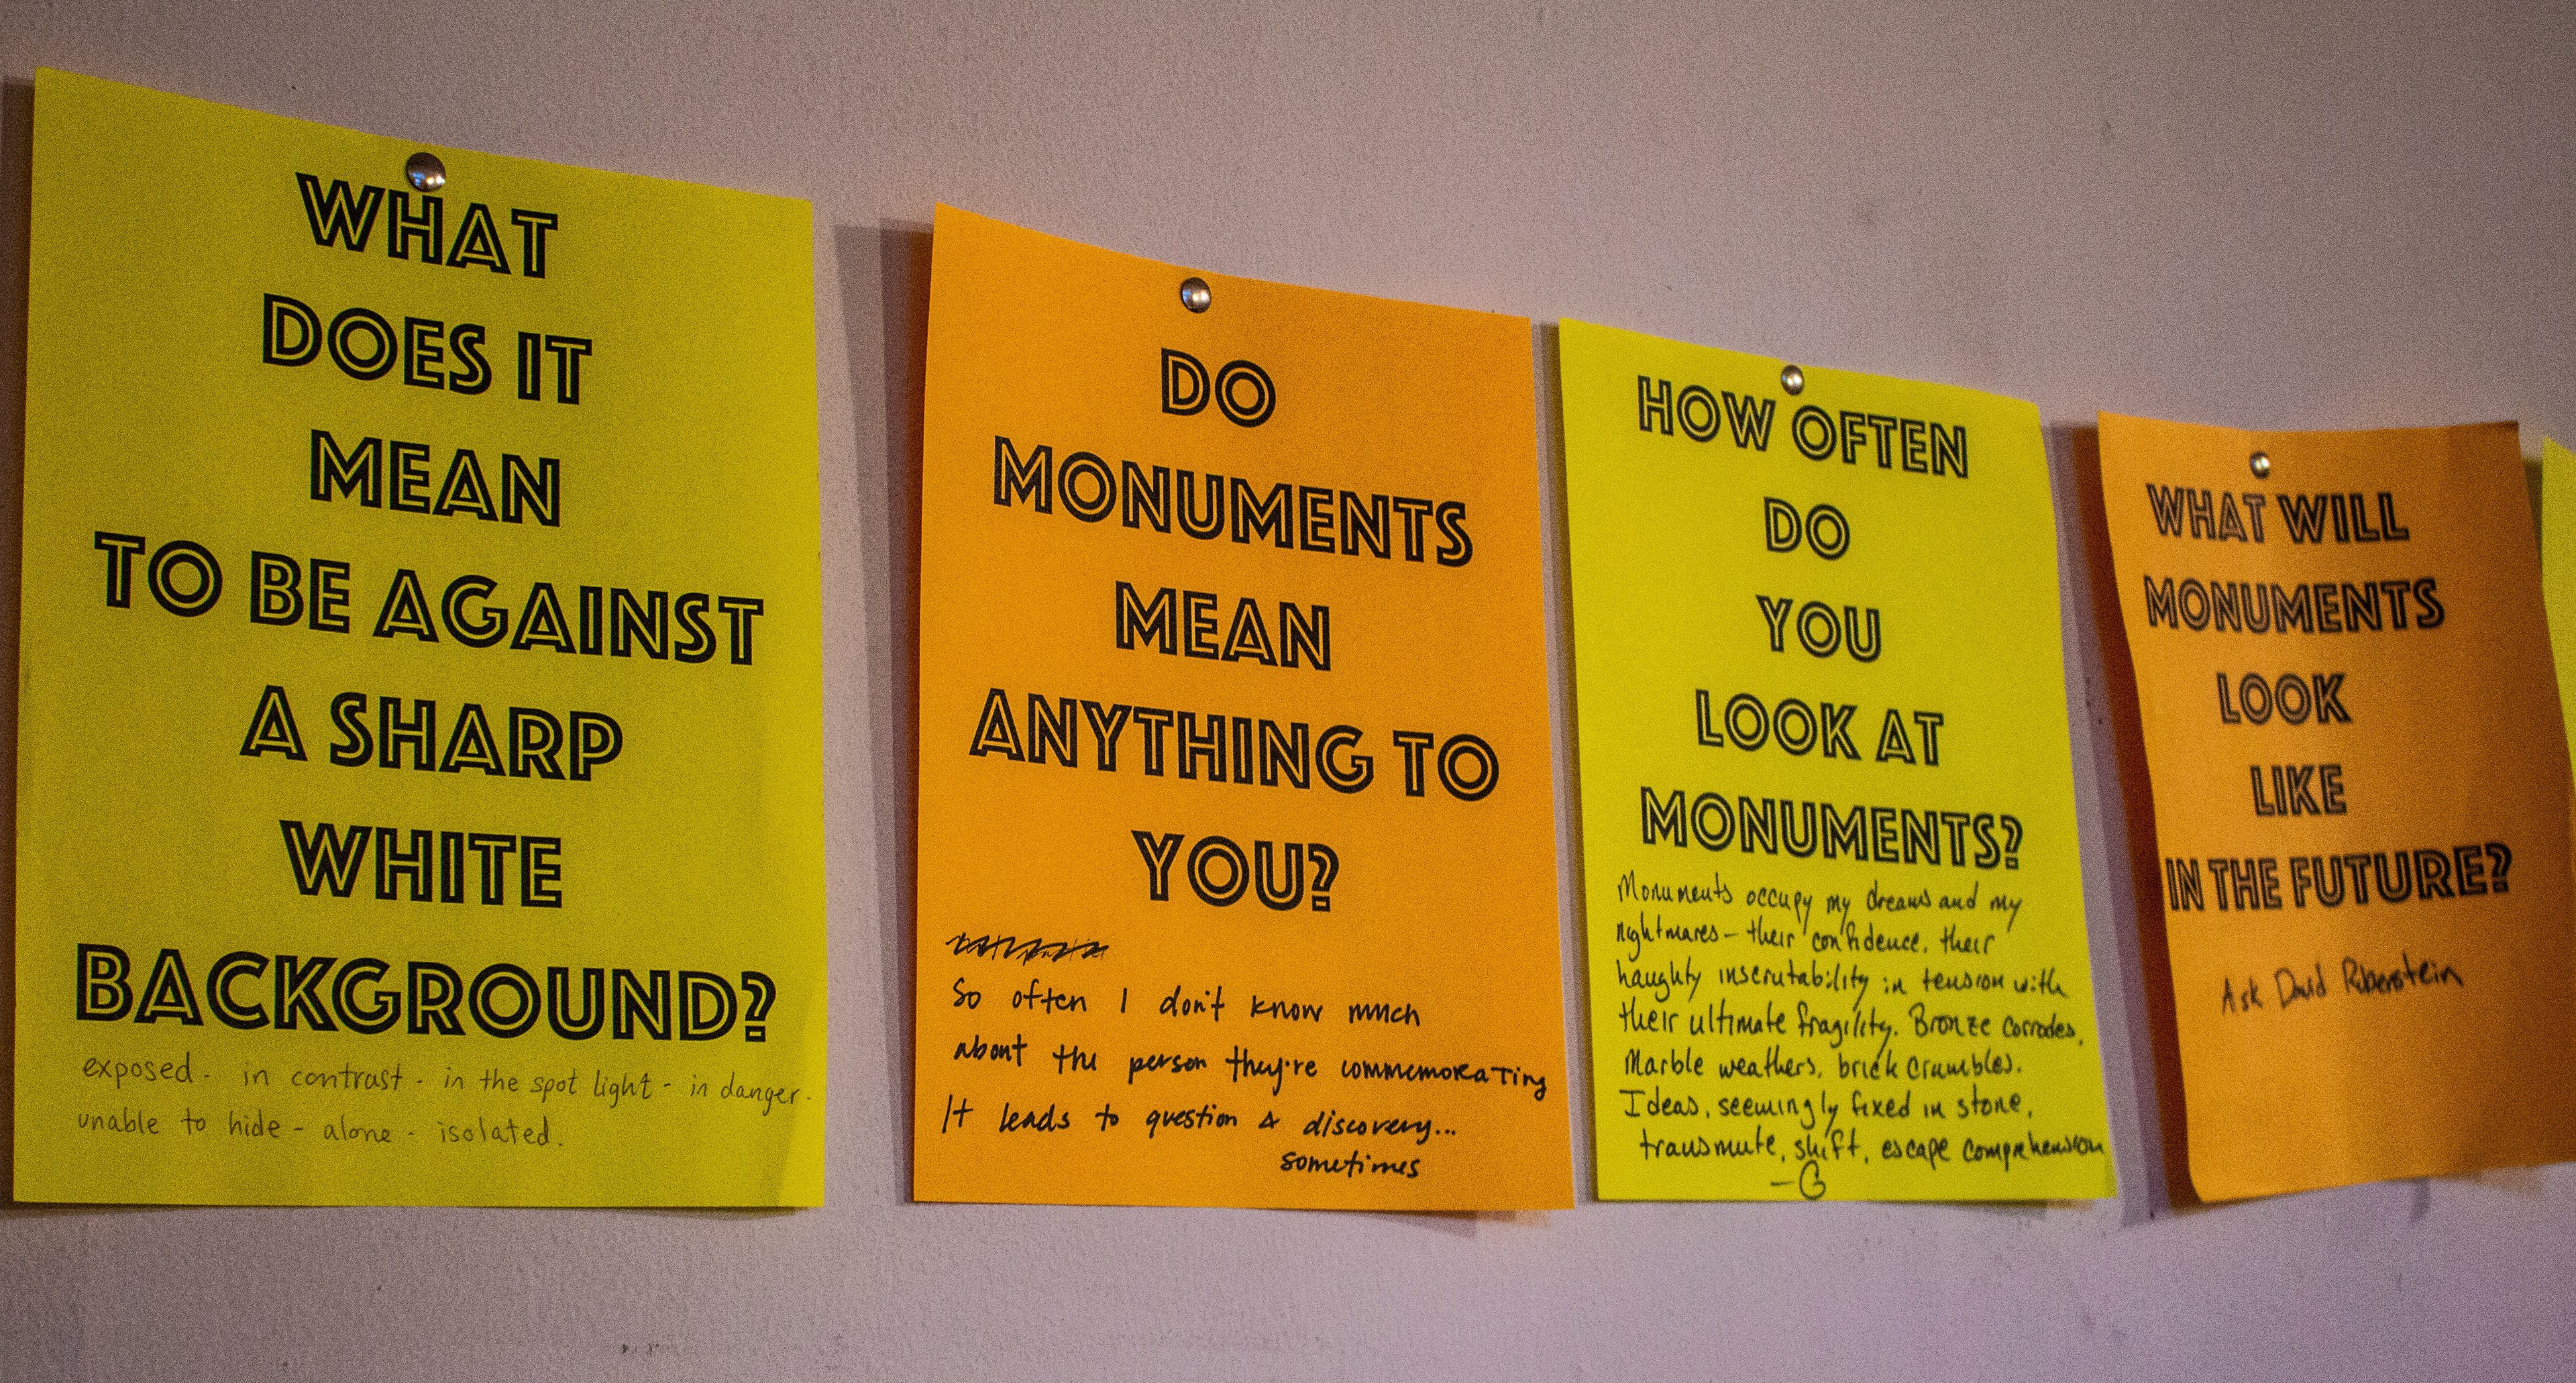 WHAT
DOES IT
MEAN
TO BE AGAINST
A SHARP
WHITE
BACKGROUND?
exposed - in contrast - in the spot light - in danger -
unable to hide - alone - isolated.
DO
MONUMENTS
MEAN
ANYTHING TO
YOU?
So often I don't know much
about the person they're commemorating
It leads to question & discovery...
sometimes
HOW OFTEN
DO
YOU
LOOK AT
MONUMENTS?
Monuments occupy my dreams and my
nightmares - their confidence, their
haughty inscrutability in tension with
their ultimate fragility. Bronze corrodes,
Marble weathers, brick crumbles.
Ideas, seemingly fixed in stone,
transmute, shift, escape comprehension
- G
WHAT WILL
MONUMENTS
LOOK
LIKE
IN THE FUTURE?
Ask David Rubenstein